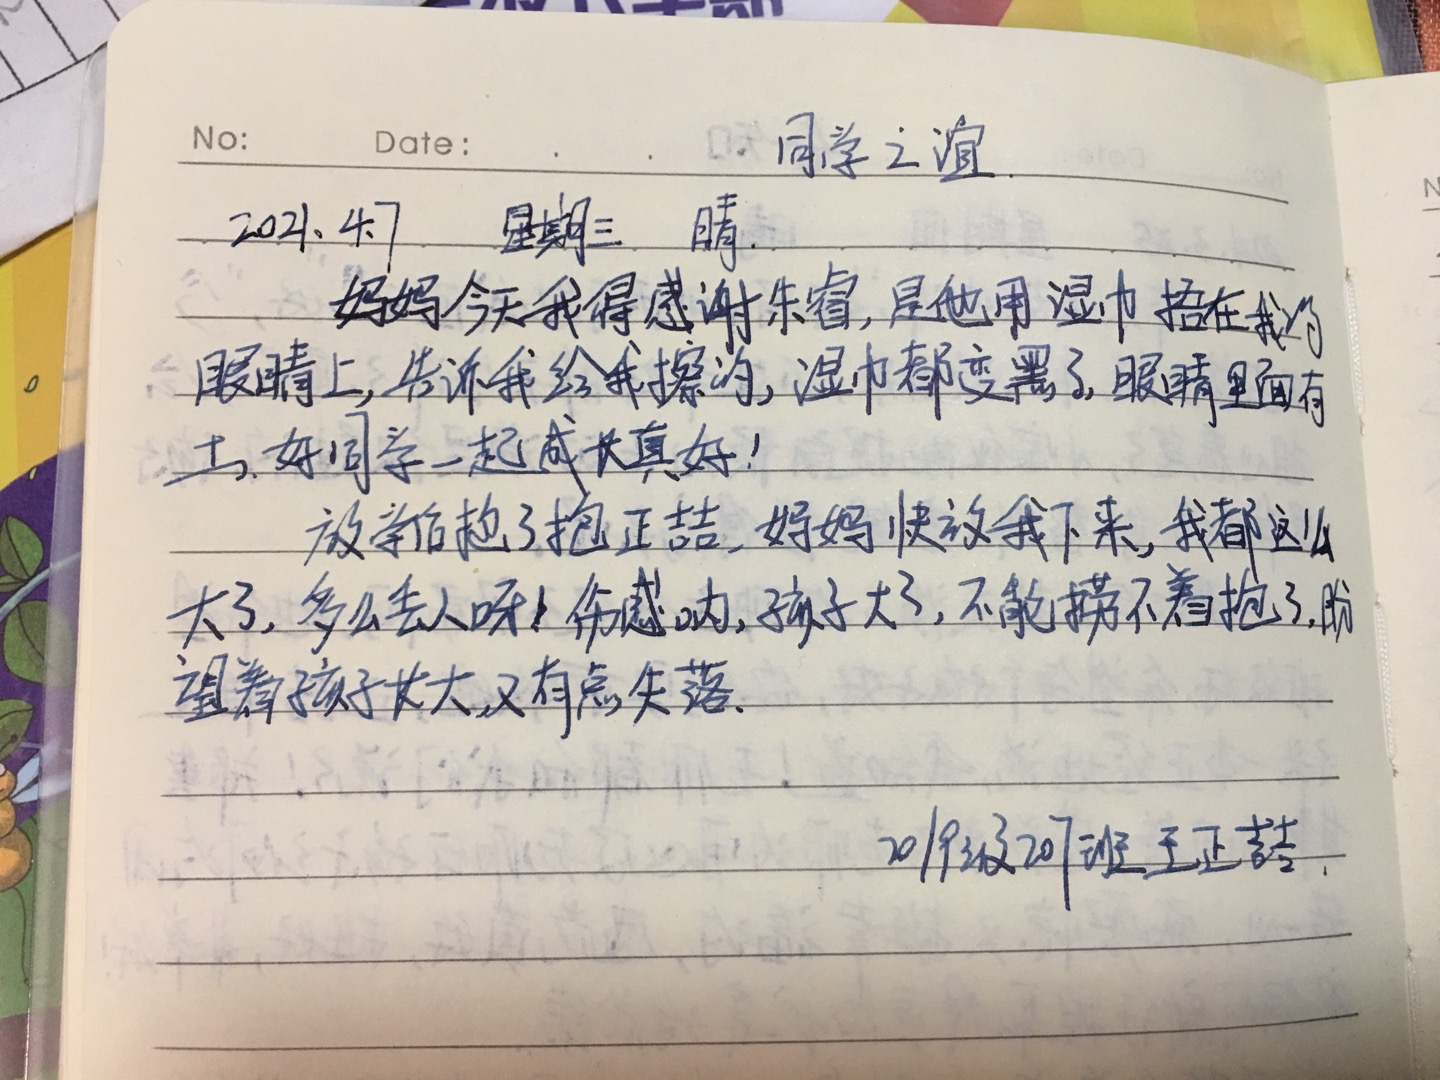 No: Date: 同学之谊.
2021.4.7 星期三 晴.
妈妈今天我得感谢朱睿,是他用湿巾捂在我的
眼睛上,告诉我给我擦的,湿巾都变黑了,眼睛里面有
土,好同学一起成长真好!
放学后抱了抱正喆,妈妈快放我下来,我都这么
大了,多么丢人呀!伤感呐,孩子大了,不能捞不着抱了,盼
望着孩子长大,又有点失落.
2019级207班王正喆.